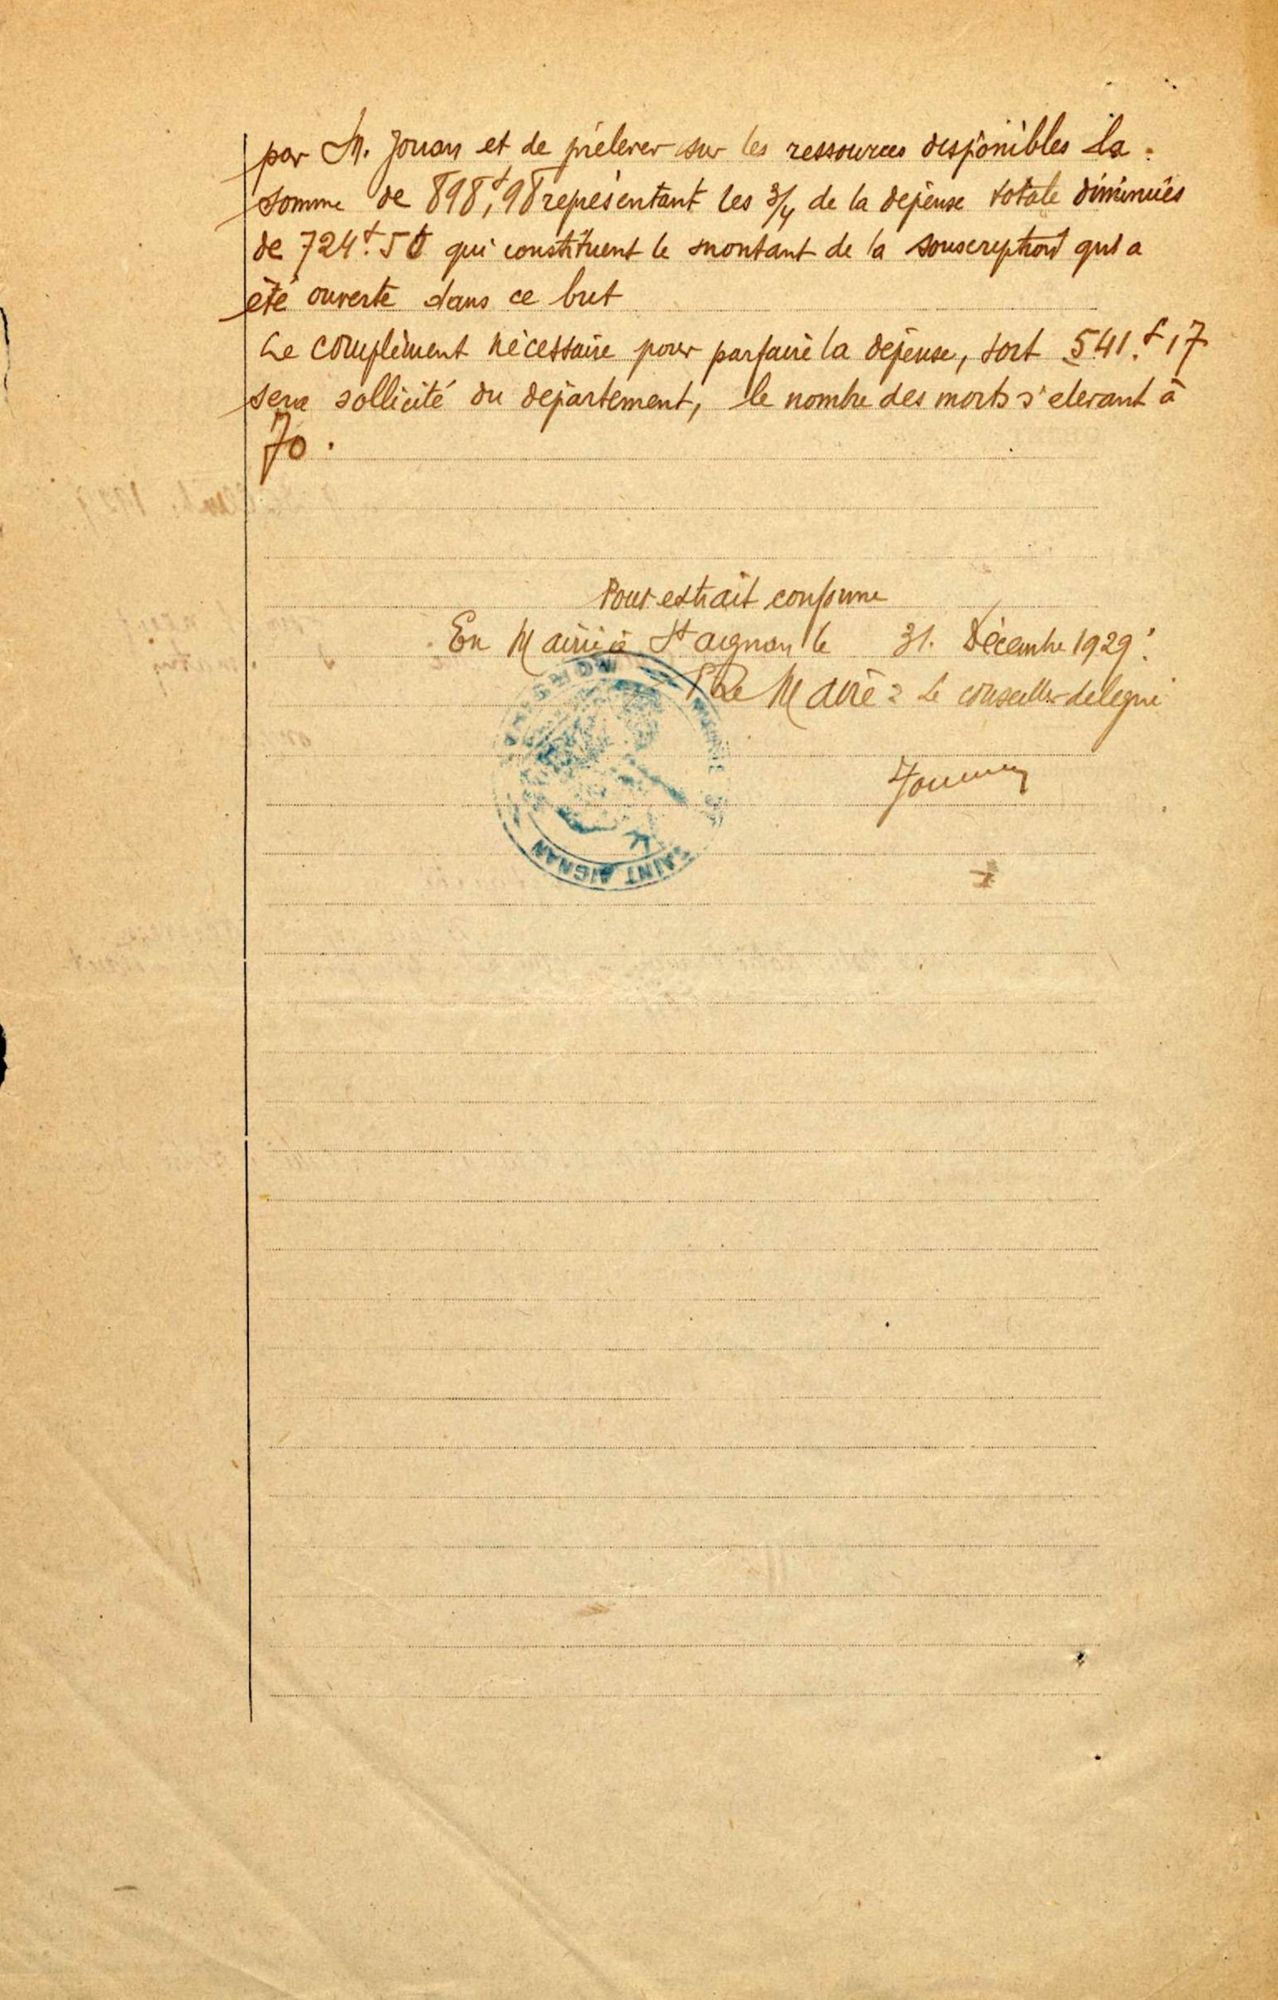 par M. Jouan et de prélever sur les ressources disponibles la
somme de 898,f98 représentant les 3/4 de la dépense totale diminués
de 724f.50 qui constituent le montant de la souscription qui a
été ouverte dans ce but
Le complément nécessaire pour parfaire la dépense, soit 541.f17
sera sollicité du département, le nombre des morts s'élevant à
70.
Pour extrait conforme
En Mairie à St aignan le 31. Décembre 1929.
Le Maire : Le conseiller délégué
SAINT AIGNAN